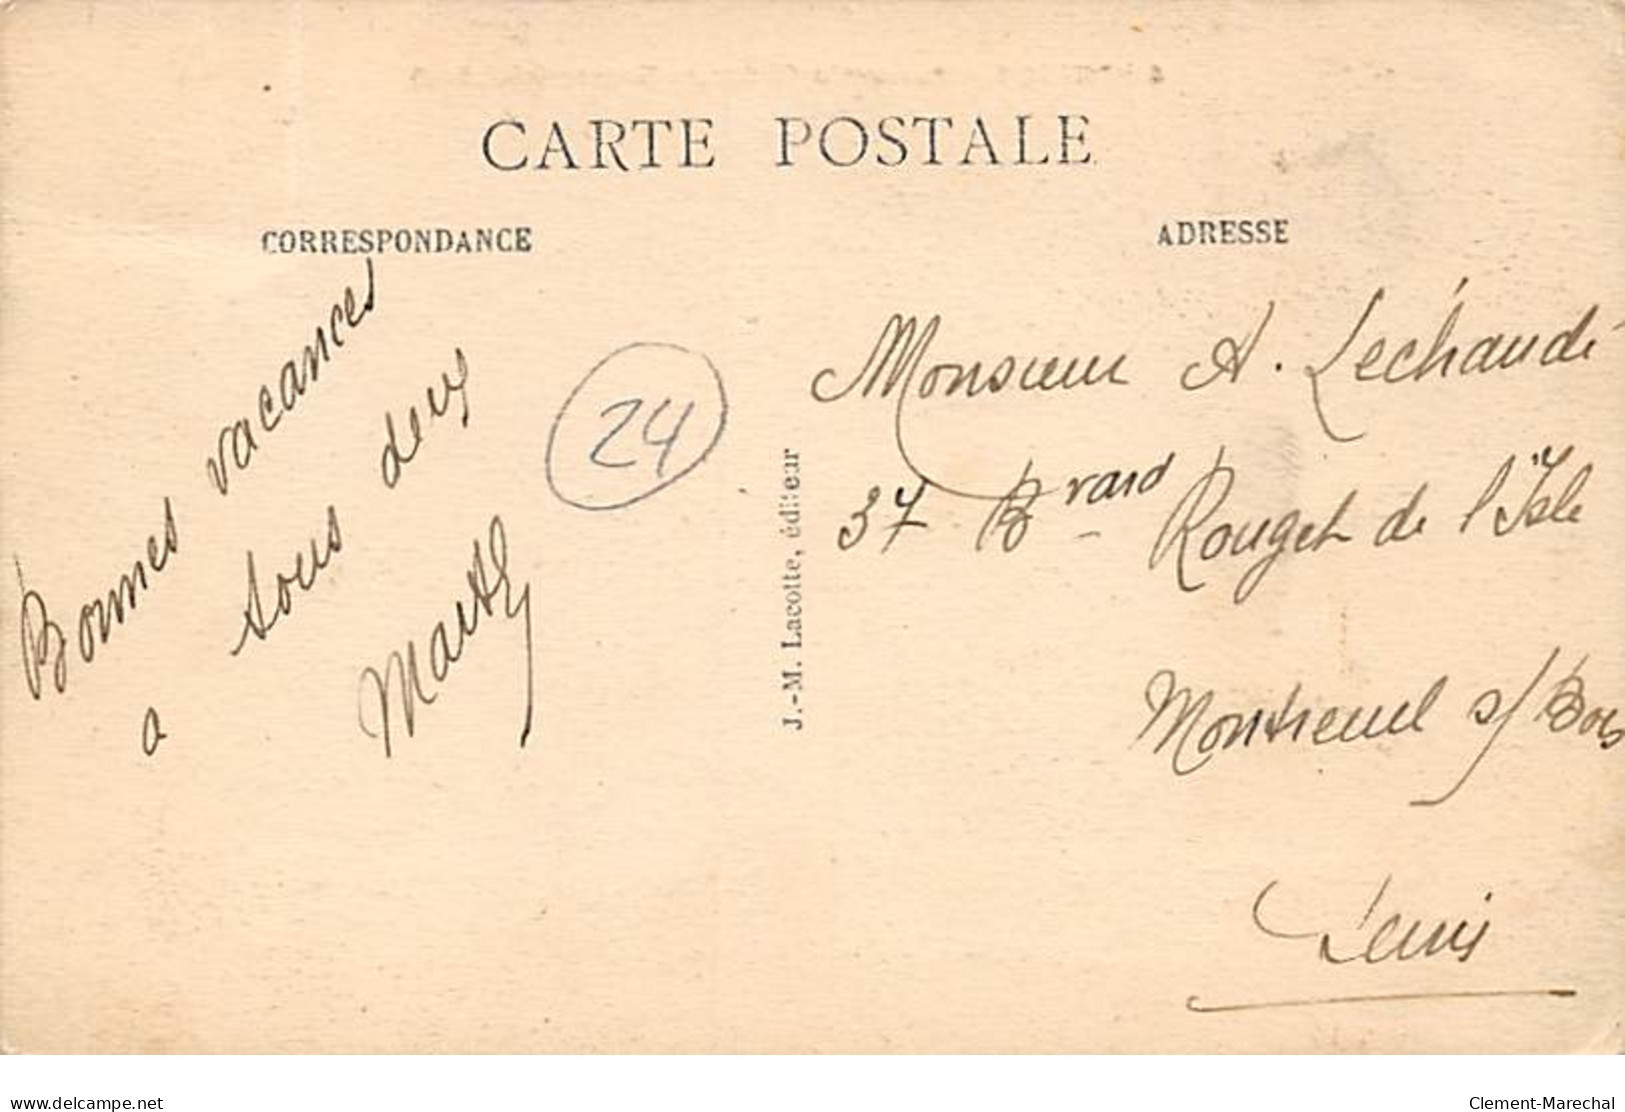 CARTE POSTALE
CORRESPONDANCE
ADRESSE
Bonnes vacances
a tous deux
Marthe
24
J.-M. Lacotte, éditeur
Monsieur A. Lechaudé
37 Bvard Rouget de l'Isle
Montreuil s/ Bois
delcampe.net
Clement-Marechal